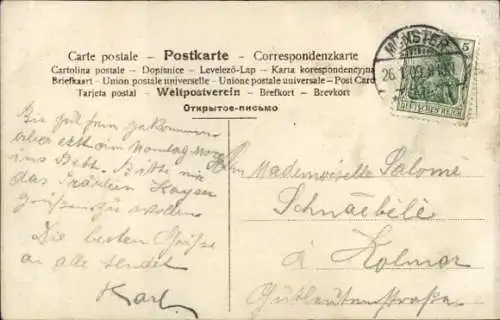 Carte postale – Postkarte – Correspondenzkarte
Cartolina postale – Dopisnice – Levelező-Lap – Karta korespondencyjna
Briefkaart – Union postale universelle – Unione postale universale – Post Card
Tarjeta postal – Weltpostverein – Brefkort – Brevkort
Открытое-письмо
MÜNSTER
5
26. 09. 8
DEUTSCHES REICH
Bin gut gekommen
erst am Montag
ins Bett. Bitte
das Fräulein Kayser
grüßen zu wollen
Die besten Grüße
an alle sendet
Karl
Mademoiselle Salomé
Schnaebélé
à Kolmar
Gutleutenstraße